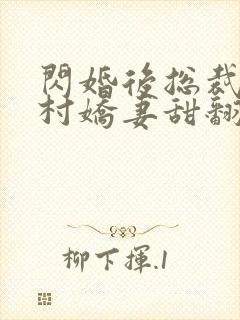 閃婚後總裁
村嬌妻甜翻
柳下揮.1